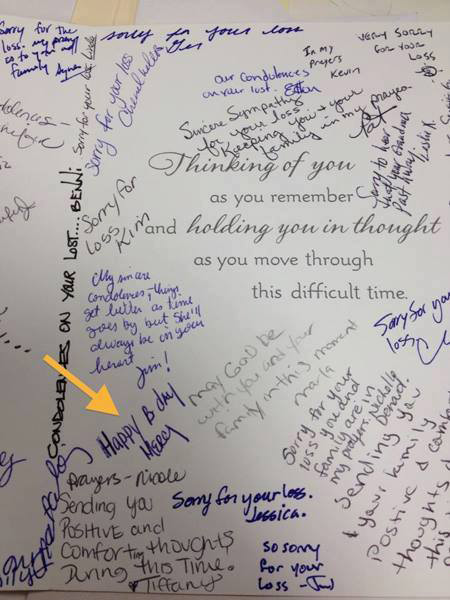 Sorry for the
loss. my prayers
go to you and
family
sorry to your loss
In my
Prayers
Kevin
VERY SORRY
FOR YOUR
LOSS
our condolences
on your lost.
Sorry for your loss
Sorry for your loss
Sincere Sympathy
for your loss
Keeping you & your
family in my prayers
Sorry to hear
that your Grandma
Past Away.
Thinking of you
as you remember
and holding you in thought
as you move through
this difficult time.
Sorry for
loss
Kim
CONDOLENCES ON YOUR LOST.... BENNI
My sincere
condolences, things
get better as time
goes by but She'll
always be in your
heart
Jim!
Sorry for your
loss
Happy B day
Mercy
may God be
with you and your
family in this moment
marla
Sorry for your
loss you and
family are in
my prayers. Michelle
Sending you
& your family
Positive &
thoughts
Prayers - Nicole
Sending You
Positive and
Comforting thoughts
During This Time.
Tiffany
Sorry for your loss.
Jessica.
So sorry
for your
loss